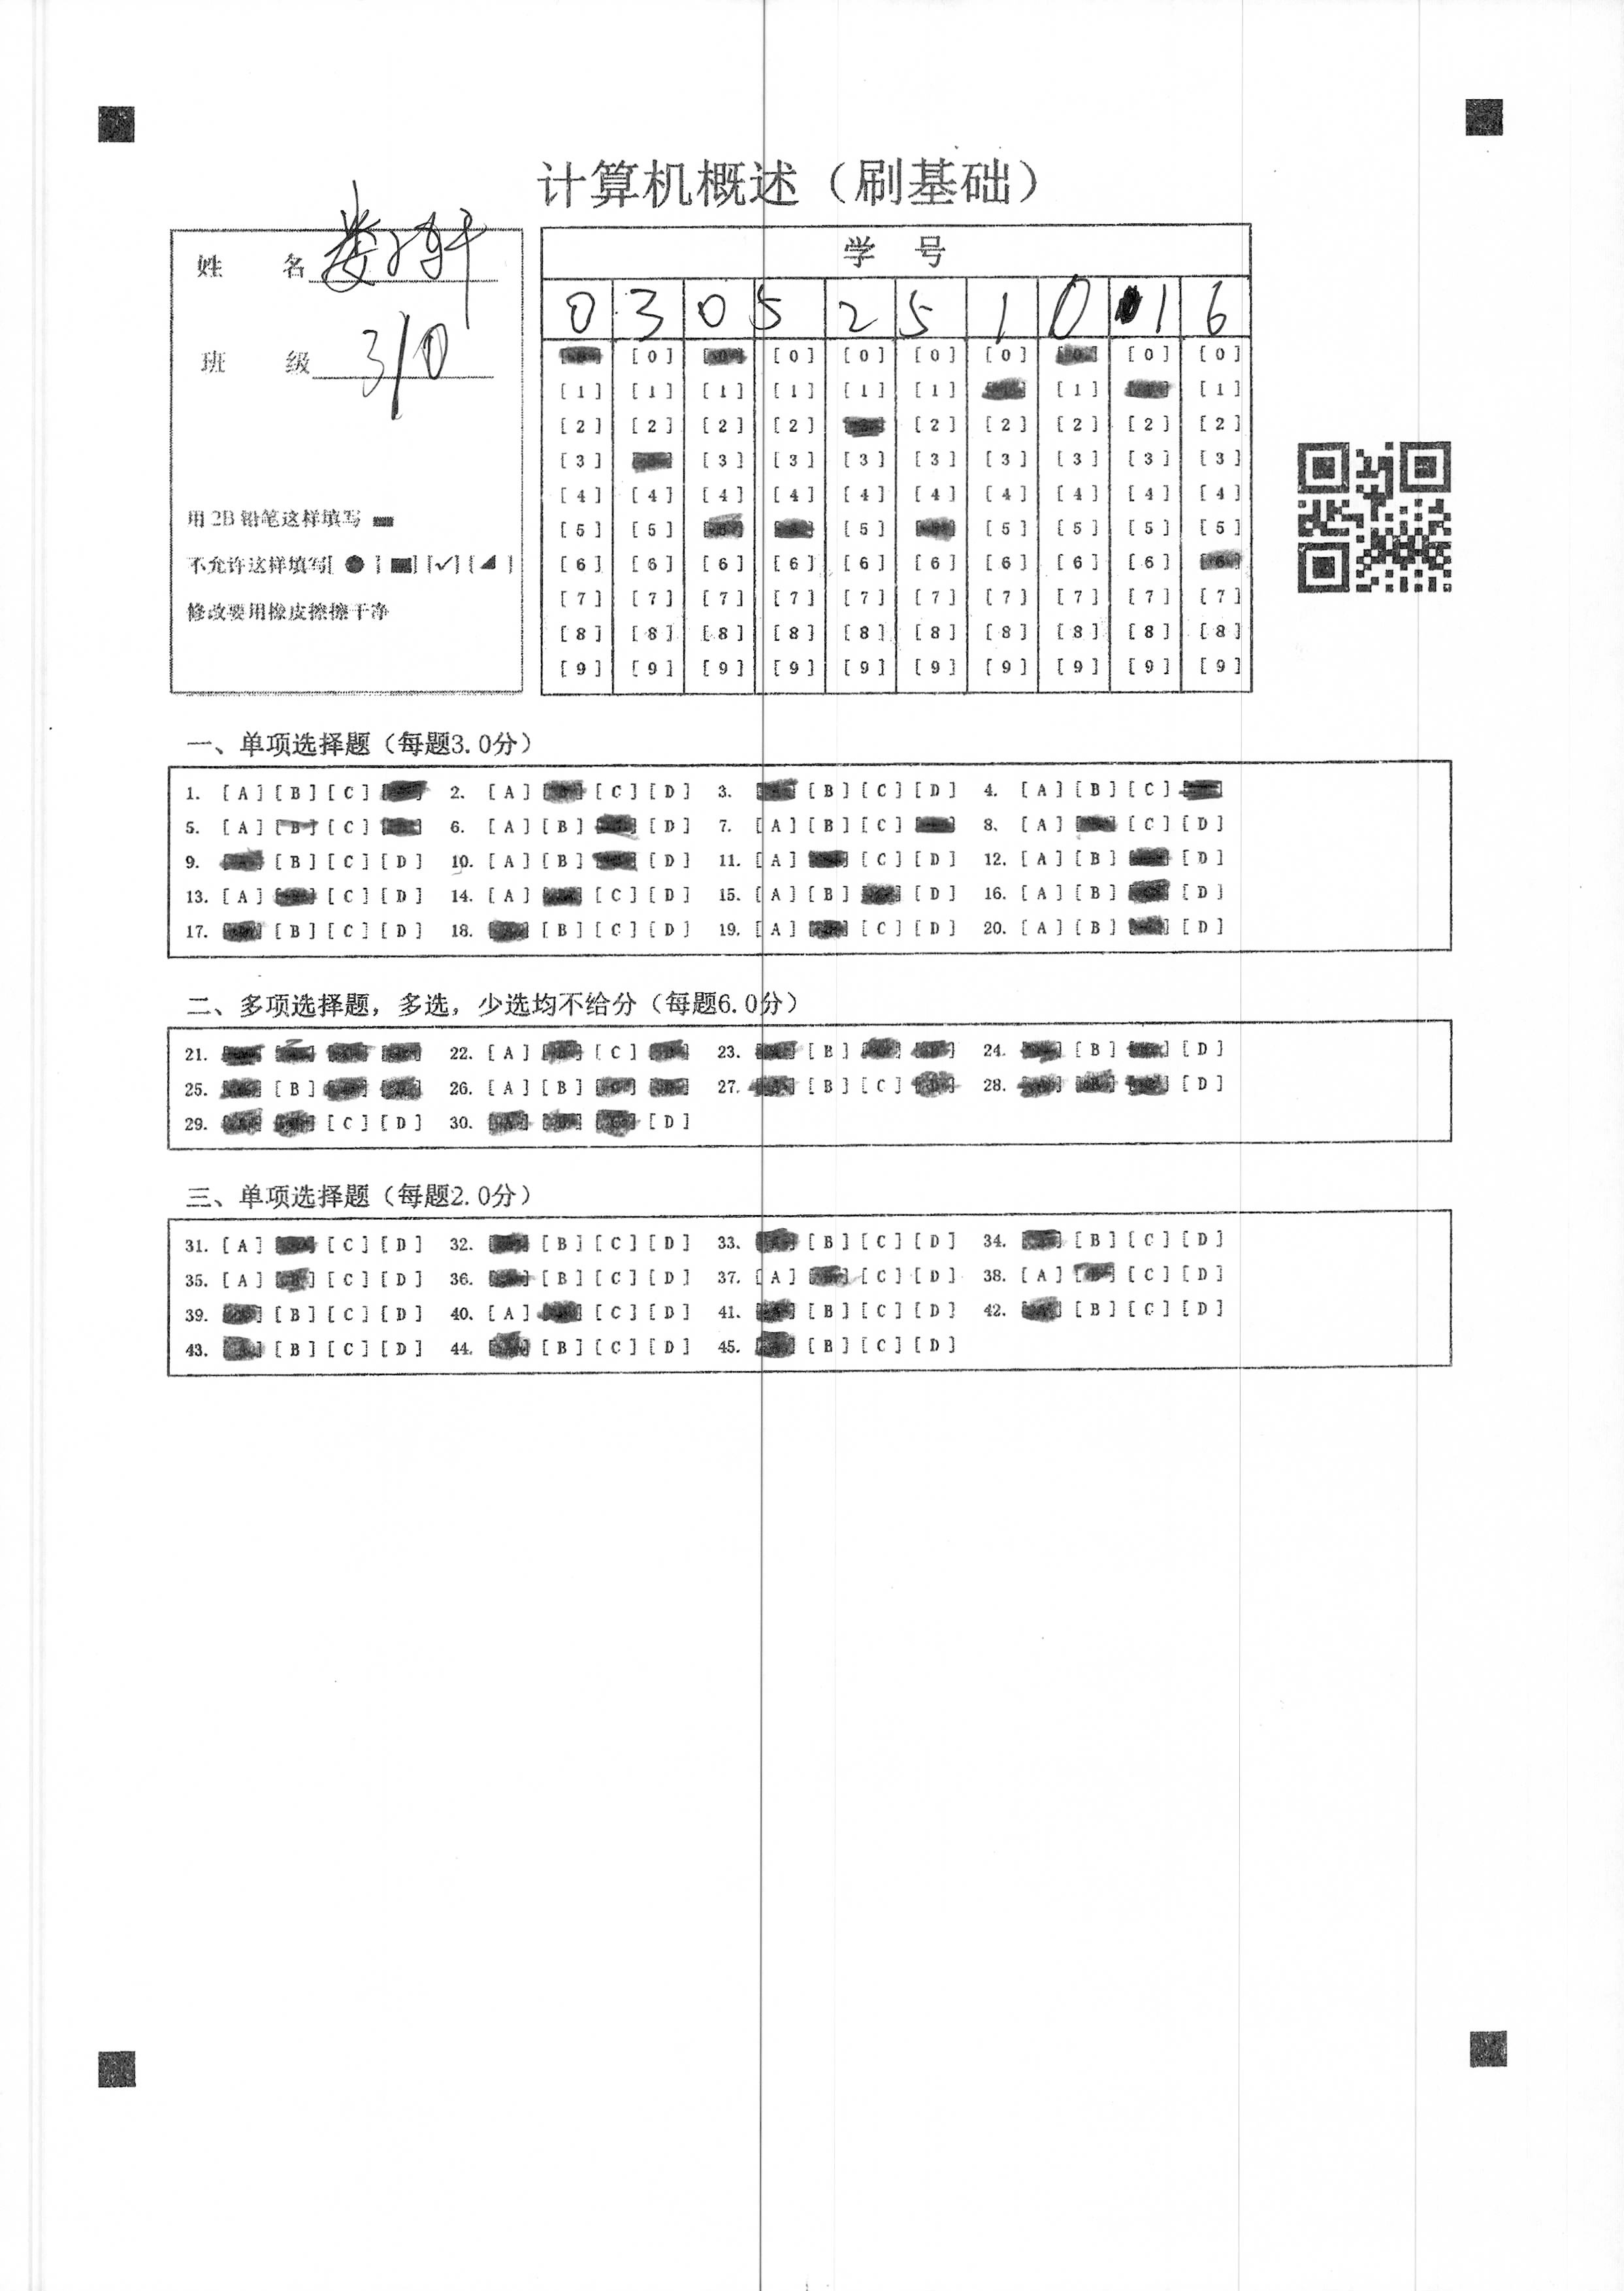 计算机概述（刷基础）
姓 名 娄
班 级 310
用 2B 铅笔这样填写
不允许这样填写[ ● ] [ ] [✓] [ ]
修改要用橡皮擦擦干净
学 号
0 3 0 5 2 5 1 0 1 6
[0] [0] [0] [0] [0] [0]
[1] [1] [1] [1] [1] [1] [1] [1]
[2] [2] [2] [2] [2] [2] [2] [2] [2]
[3] [3] [3] [3] [3] [3] [3] [3] [3]
[4] [4] [4] [4] [4] [4] [4] [4] [4] [4]
[5] [5] [5] [5] [5] [5] [5]
[6] [6] [6] [6] [6] [6] [6] [6] [6] [6]
[7] [7] [7] [7] [7] [7] [7] [7] [7] [7]
[8] [8] [8] [8] [8] [8] [8] [8] [8] [8]
[9] [9] [9] [9] [9] [9] [9] [9] [9] [9]
一、单项选择题（每题3.0分）
1. [A] [B] [C] 2. [A] [C] [D] 3. [B] [C] [D] 4. [A] [B] [C]
5. [A] [B] [C] 6. [A] [B] [D] 7. [A] [B] [C] 8. [A] [C] [D]
9. [B] [C] [D] 10. [A] [B] [D] 11. [A] [C] [D] 12. [A] [B] [D]
13. [A] [C] [D] 14. [A] [C] [D] 15. [A] [B] [D] 16. [A] [B] [D]
17. [B] [C] [D] 18. [B] [C] [D] 19. [A] [C] [D] 20. [A] [B] [D]
二、多项选择题，多选，少选均不给分（每题6.0分）
21. 22. [A] [C] 23. [B] 24. [B] [D]
25. [B] 26. [A] [B] 27. [B] [C] 28. [D]
29. [C] [D] 30. [D]
三、单项选择题（每题2.0分）
31. [A] [C] [D] 32. [B] [C] [D] 33. [B] [C] [D] 34. [B] [C] [D]
35. [A] [C] [D] 36. [B] [C] [D] 37. [A] [C] [D] 38. [A] [C] [D]
39. [B] [C] [D] 40. [A] [C] [D] 41. [B] [C] [D] 42. [B] [C] [D]
43. [B] [C] [D] 44. [B] [C] [D] 45. [B] [C] [D]